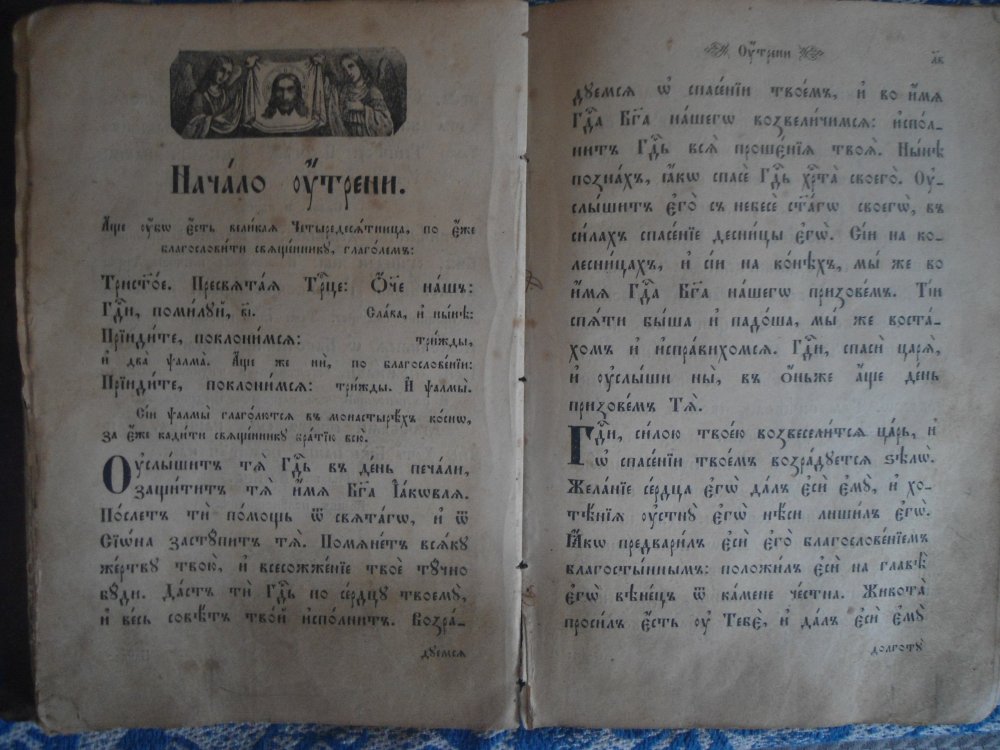 Нача́ло ᲂу҆́трени.
А҆́ще ᲂу҆́бѡ є҆́сть вели́каѧ Четыредесѧ́тница, по є҆́же
благослови́ти свѧще́ннику, глаго́лемъ:
Трист҃о́е. Пресвѧта́ѧ Трⷪ҇це: Ѻ҆́ч҃е на́шъ:
Гдⷭ҇и, поми́лꙋй, в҃і. Сла́ва, и҆ ны́нѣ:
Прїиди́те, поклони́мсѧ: три́жды,
и҆ два̀ ѱалма̀. А҆́ще же нѝ, по благослове́нїи:
Прїиди́те, поклони́мсѧ: три́жды. И҆ ѱалмы̀.
Сі́и ѱалмы̀ глаго́лютсѧ въ монастырѣ́хъ ко́снѡ,
за є҆́же кади́ти свѧще́нникꙋ бра́тїю всю̀.
Оу҆слы́шитъ тѧ̀ Гдⷭ҇ь въ де́нь печа́ли,
защи́титъ тѧ̀ и҆́мѧ Бг҃а І҆а́кѡвлѧ.
По́слетъ тѝ по́мощь ѿ свѧта́гѡ, и҆ ѿ
Сїѡ́на застꙋ́питъ тѧ̀. Помѧне́тъ всѧ́кꙋ
же́ртвꙋ твою̀, и҆ всесожже́нїе твоѐ тꙋ́чно
бꙋ́ди. Да́стъ тѝ Гдⷭ҇ь по се́рдцꙋ твоемꙋ̀,
и҆ ве́сь совѣ́тъ тво́й и҆спо́лнитъ. Возра́-
дꙋемсѧ
Оу҆́трени
л҃в
дꙋемсѧ ѡ҆ спасе́нїи твое́мъ, и҆ во и҆́мѧ
Гдⷭ҇а Бг҃а на́шегѡ возвели́чимсѧ: и҆спо́л-
нитъ Гдⷭ҇ь всѧ̀ проше́нїѧ твоѧ̀. Ны́нѣ
позна́хъ, ꙗ҆́кѡ спасѐ Гдⷭ҇ь хрⷭ҇та̀ своего̀. Оу҆-
слы́шитъ є҆го̀ съ небесѐ ст҃а́гѡ своегѡ̀, въ
си́лахъ спасе́нїе десни́цы є҆гѡ̀. Сі́и на ко-
лесни́цахъ, и҆ сі́и на ко́нѣхъ, мы́ же во
и҆́мѧ Гдⷭ҇а Бг҃а на́шегѡ призове́мъ. Ті́и
спѧ́ти бы́ша и҆ падо́ша, мы́ же воста́-
хомъ и҆ и҆спра́вихомсѧ. Гдⷭ҇и, спасѝ царѧ̀,
и҆ ᲂу҆слы́ши ны̀, въ ѻ҆́ньже а҆́ще де́нь
призове́мъ Тѧ̀.
Гдⷭ҇и, си́лою твое́ю возвесели́тсѧ ца́рь, и҆
ѡ҆ спасе́нїи твое́мъ возра́дꙋетсѧ ѕѣлѡ̀.
Жела́нїе се́рдца є҆гѡ̀ да́лъ є҆сѝ є҆мꙋ̀, и҆ хо-
тѣ́нїѧ ᲂу҆стнꙋ̀ є҆гѡ̀ нѣ́си лиши́лъ є҆гѡ̀.
Ꙗ҆́кѡ предвари́лъ є҆сѝ є҆го̀ благослове́нїемъ
благосты́ннымъ: положи́лъ є҆сѝ на главѣ̀
є҆гѡ̀ вѣне́цъ ѿ ка́мене че́стна. Живота̀
проси́лъ є҆́сть ᲂу҆ Тебє̀, и҆ да́лъ є҆сѝ є҆мꙋ̀
долготꙋ̀